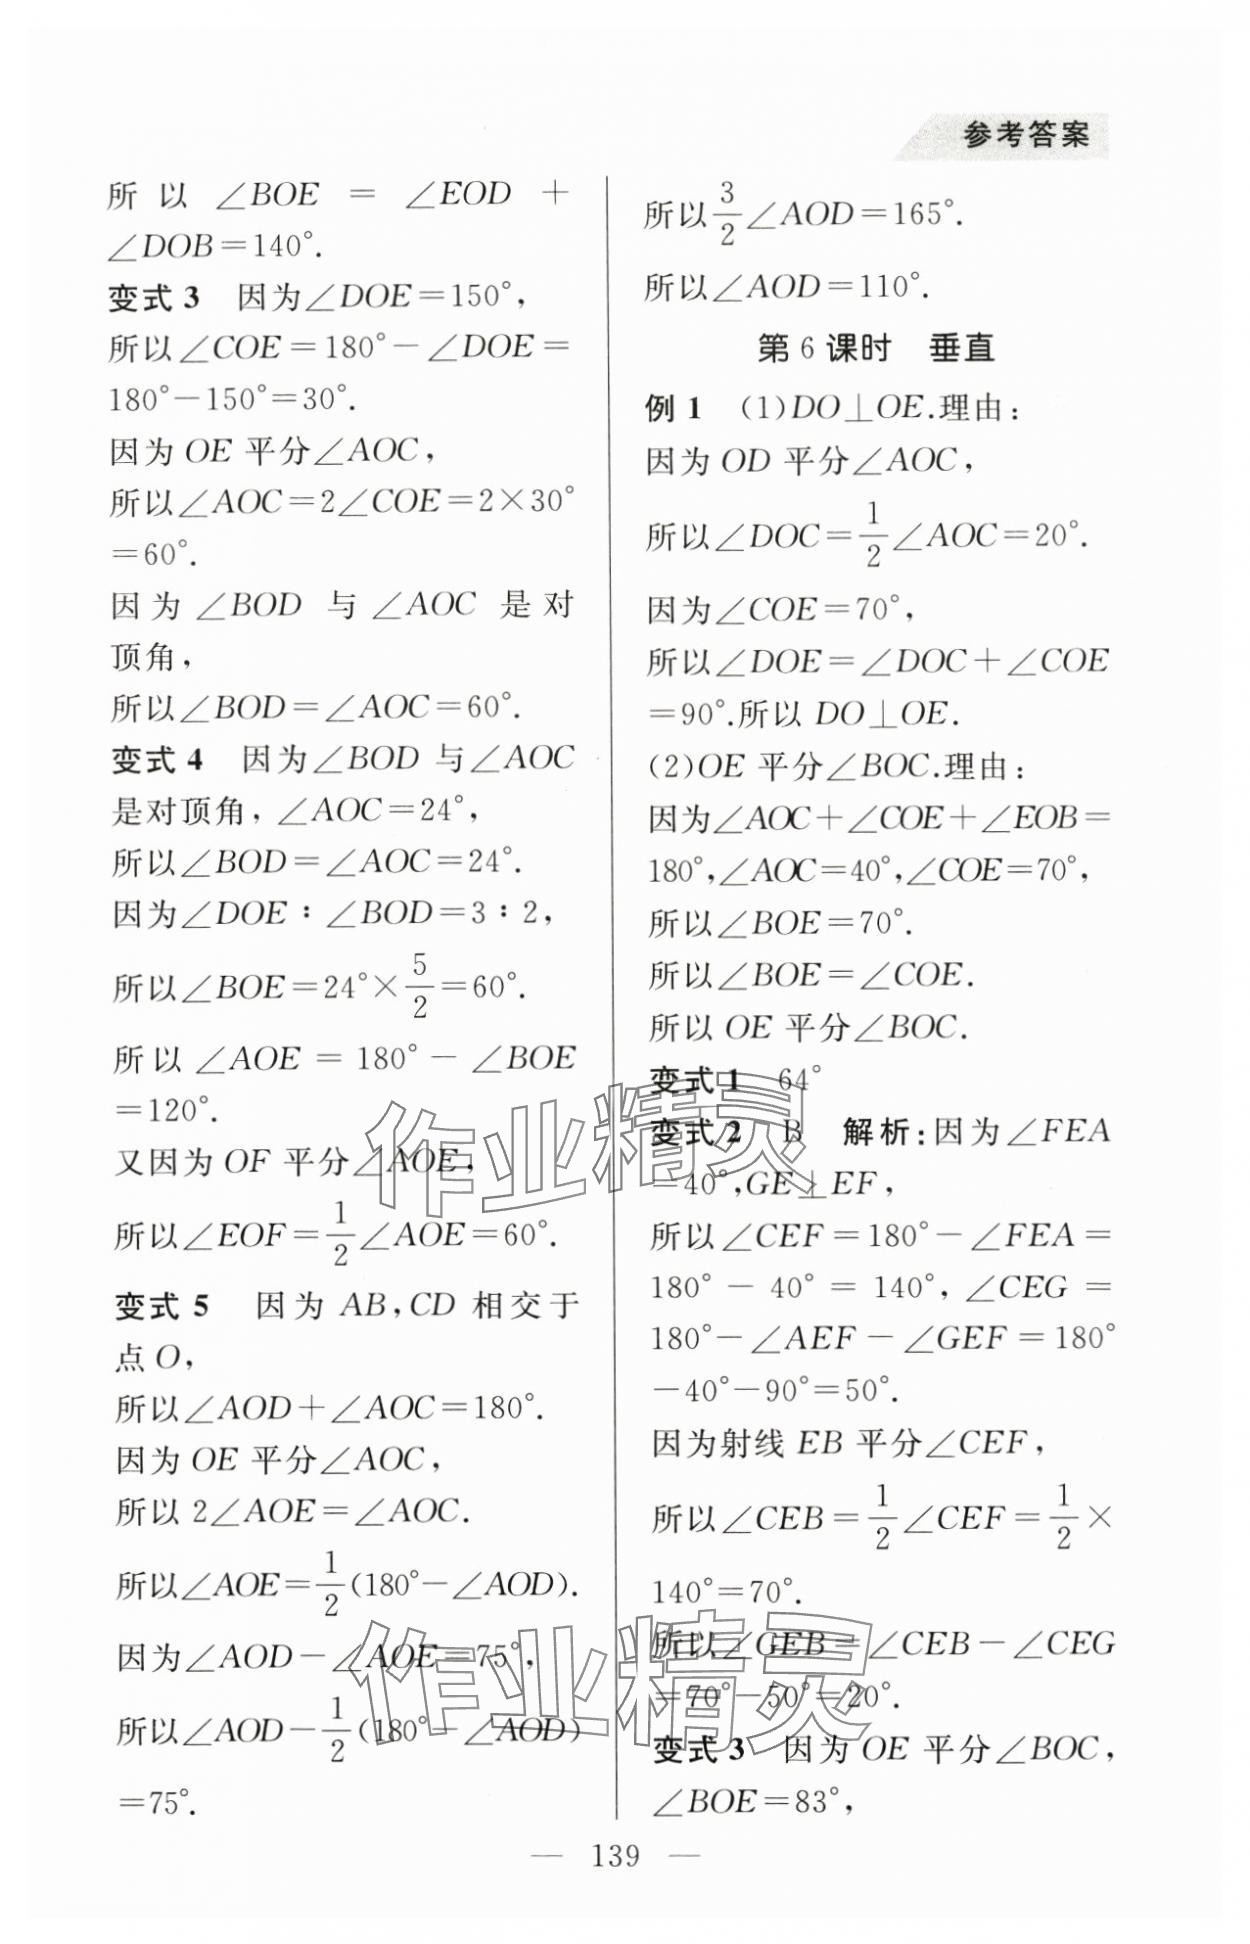 参考答案
所以∠BOE=∠EOD+
∠DOB=140°.
变式3 因为∠DOE=150°,
所以∠COE=180°-∠DOE=
180°-150°=30°.
因为OE平分∠AOC,
所以∠AOC=2∠COE=2×30°
=60°.
因为∠BOD与∠AOC是对
顶角,
所以∠BOD=∠AOC=60°.
变式4 因为∠BOD与∠AOC
是对顶角,∠AOC=24°,
所以∠BOD=∠AOC=24°.
因为∠DOE:∠BOD=3:2,
所以∠BOE=24°×5/2=60°.
所以∠AOE=180°-∠BOE
=120°.
又因为OF平分∠AOE,
所以∠EOF=1/2∠AOE=60°.
变式5 因为AB,CD相交于
点O,
所以∠AOD+∠AOC=180°.
因为OE平分∠AOC,
所以2∠AOE=∠AOC.
所以∠AOE=1/2(180°-∠AOD).
因为∠AOD-∠AOE=75°,
所以∠AOD-1/2(180°-∠AOD)
=75°.
所以3/2∠AOD=165°.
所以∠AOD=110°.
第6课时 垂直
例1 (1)DO⊥OE.理由:
因为OD平分∠AOC,
所以∠DOC=1/2∠AOC=20°.
因为∠COE=70°,
所以∠DOE=∠DOC+∠COE
=90°.所以DO⊥OE.
(2)OE平分∠BOC.理由:
因为∠AOC+∠COE+∠EOB=
180°,∠AOC=40°,∠COE=70°,
所以∠BOE=70°.
所以∠BOE=∠COE.
所以OE平分∠BOC.
变式1 64°
变式2 B 解析:因为∠FEA
=40°,GE⊥EF,
所以∠CEF=180°-∠FEA=
180°-40°=140°,∠CEG=
180°-∠AEF-∠GEF=180°
-40°-90°=50°.
因为射线EB平分∠CEF,
所以∠CEB=1/2∠CEF=1/2×
140°=70°.
所以∠GEB=∠CEB-∠CEG
=70°-50°=20°.
变式3 因为OE平分∠BOC,
∠BOE=83°,
— 139 —
作业精灵
作业精灵